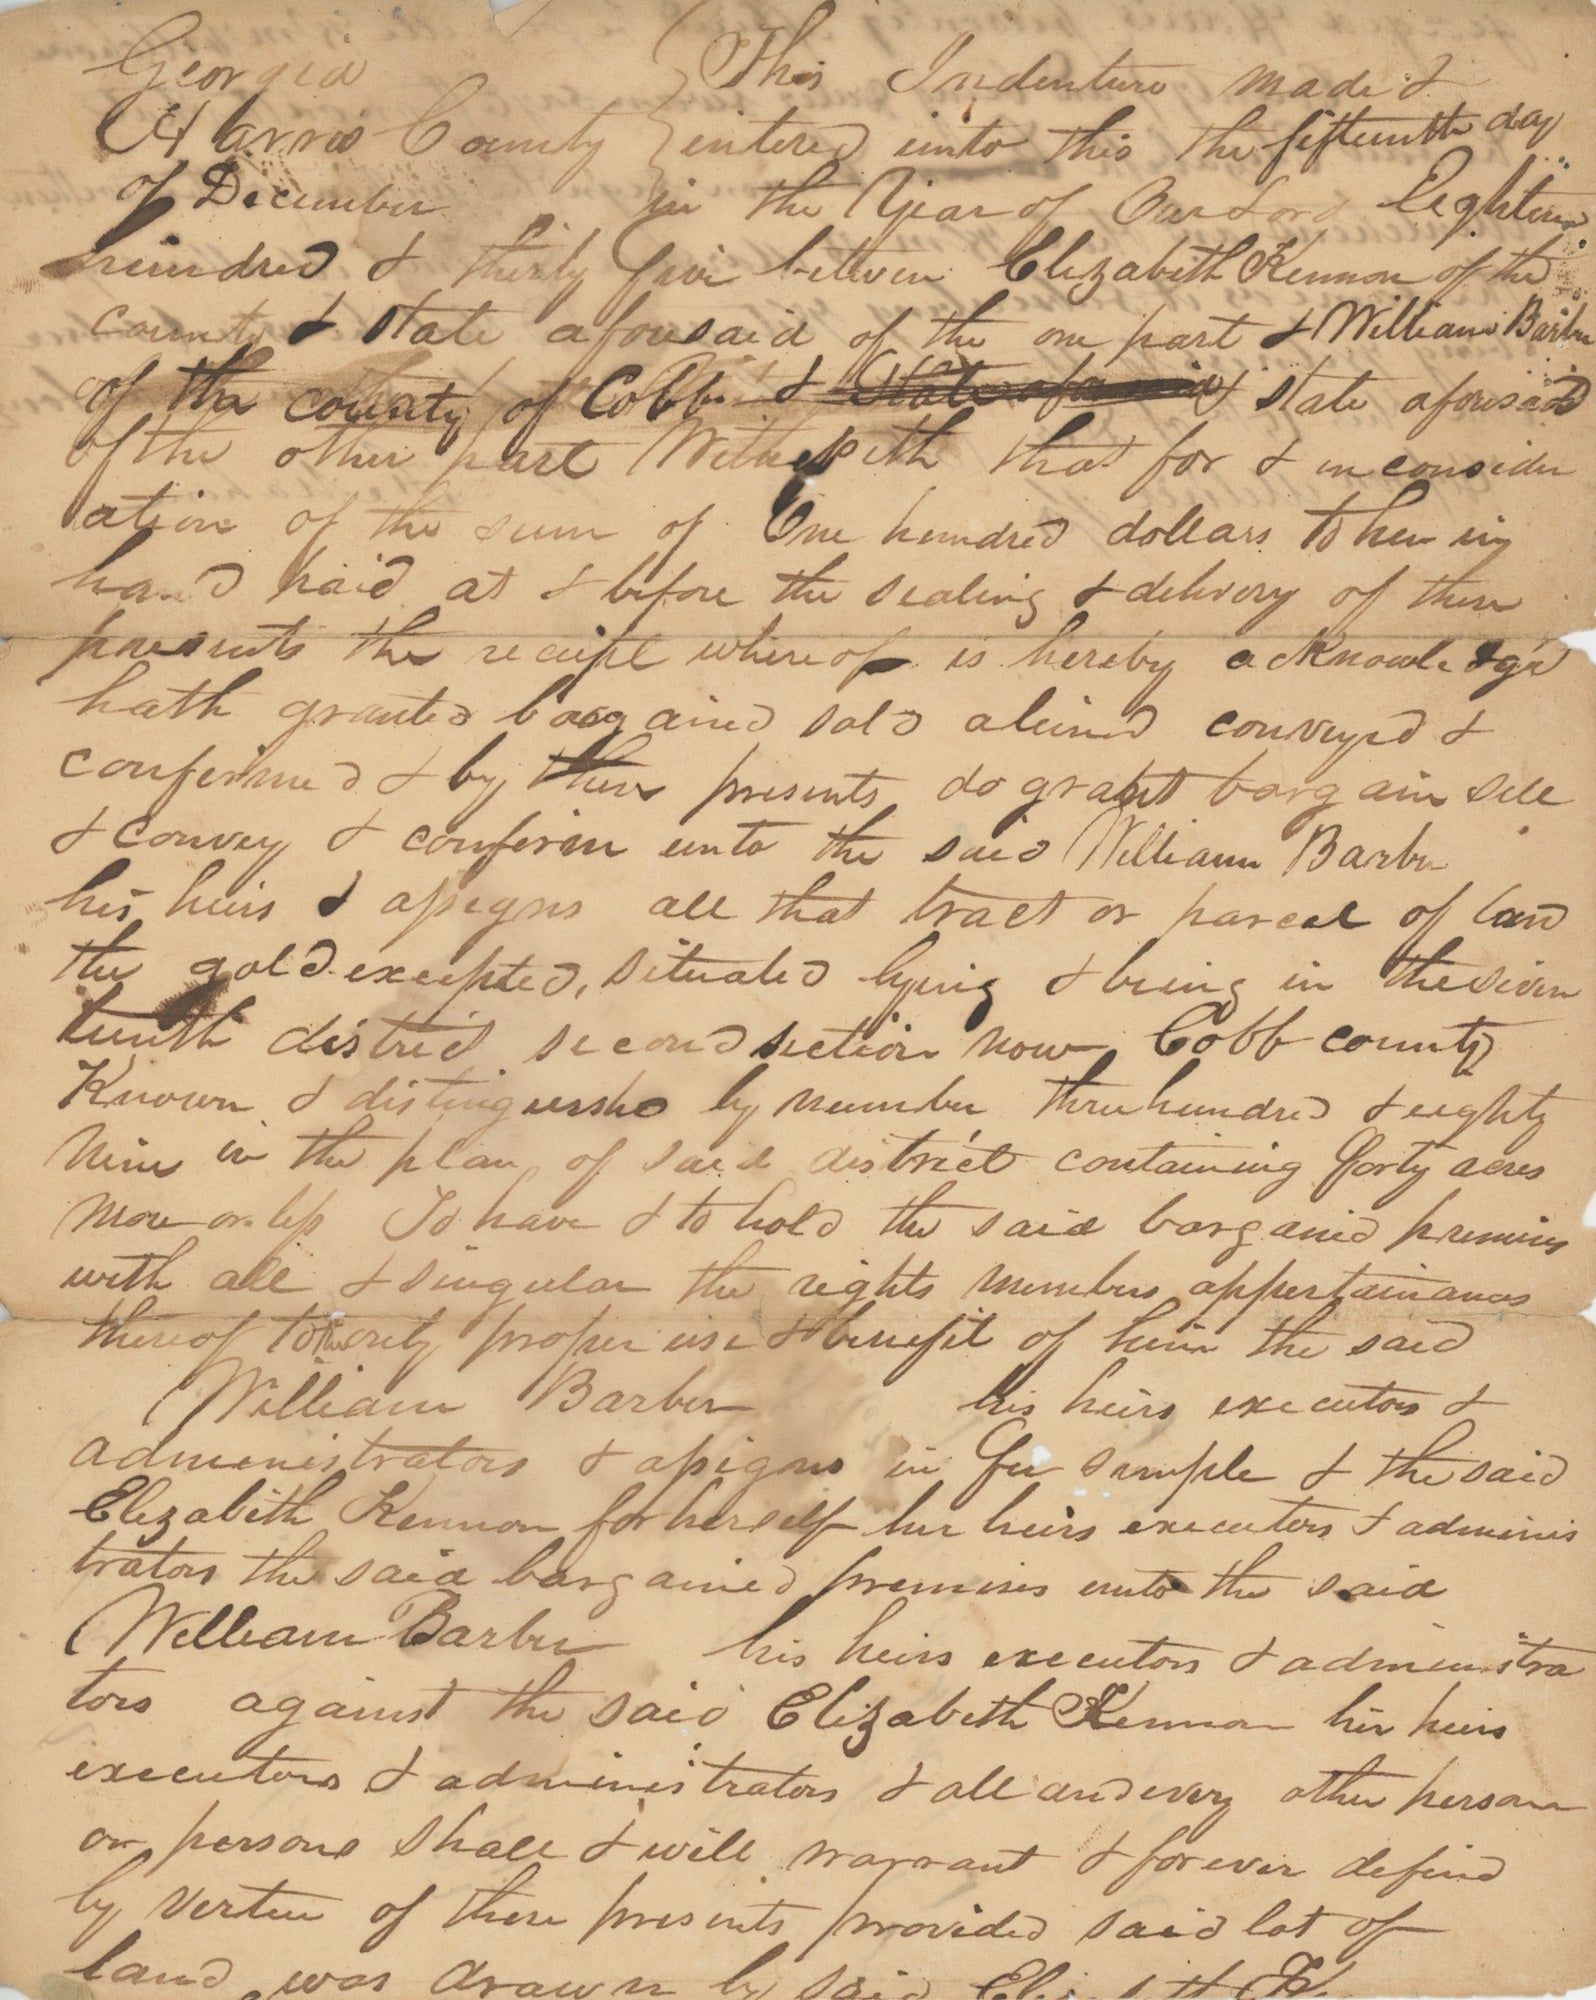 Georgia } This Indenture made &
Harris County } entered into this the fifteenth day
of December in the Year of Our Lord Eighteen
hundred & thirty five between Elizabeth Kennon of the
county & state aforesaid of the one part & William Barber
of the county of Cobb & State aforesaid & state aforesaid
of the other part Witnesseth that for & in consider
ation of the sum of One hundred dollars to her in
hand paid at & before the sealing & delivery of these
presents the receipt whereof is hereby acknowledg'd
hath granted bargained sold aliened conveyed &
confirmed & by these presents do grant bargain sell
& convey & confirm unto the said William Barber
his heirs & assigns all that tract or parcel of land
the gold excepted, situated lying & being in the seven
teenth district second section now Cobb county
Known & distinguished by number three hundred & eighty
nine in the plan of said district containing forty acres
more or less To have & to hold the said bargained premises
with all & singular the rights members appertainances
thereof to the only proper use & benefit of him the said
William Barber his heirs executors &
administrators & assigns in fee simple & the said
Elizabeth Kennon for herself her heirs executors & adminis
trators the said bargained premises unto the said
William Barber his heirs executors & administra
tors against the said Elizabeth Kennon her heirs
executors & administrators & all and every other person
or persons shall & will warrant & forever defend
by vertue of these presents provided said lot of
land was drawn by said